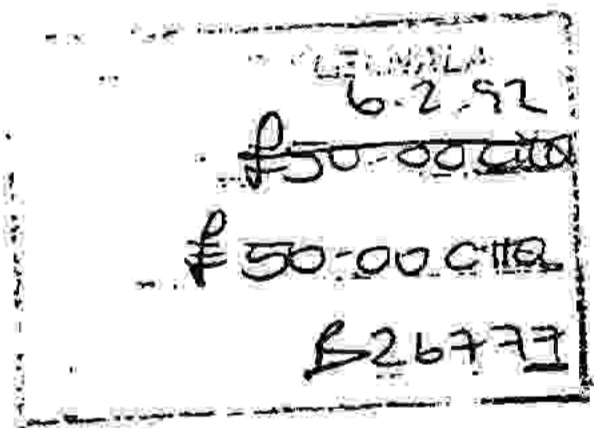 6.2.92
£50-00 CHQ
£50-00 CHQ
B26777